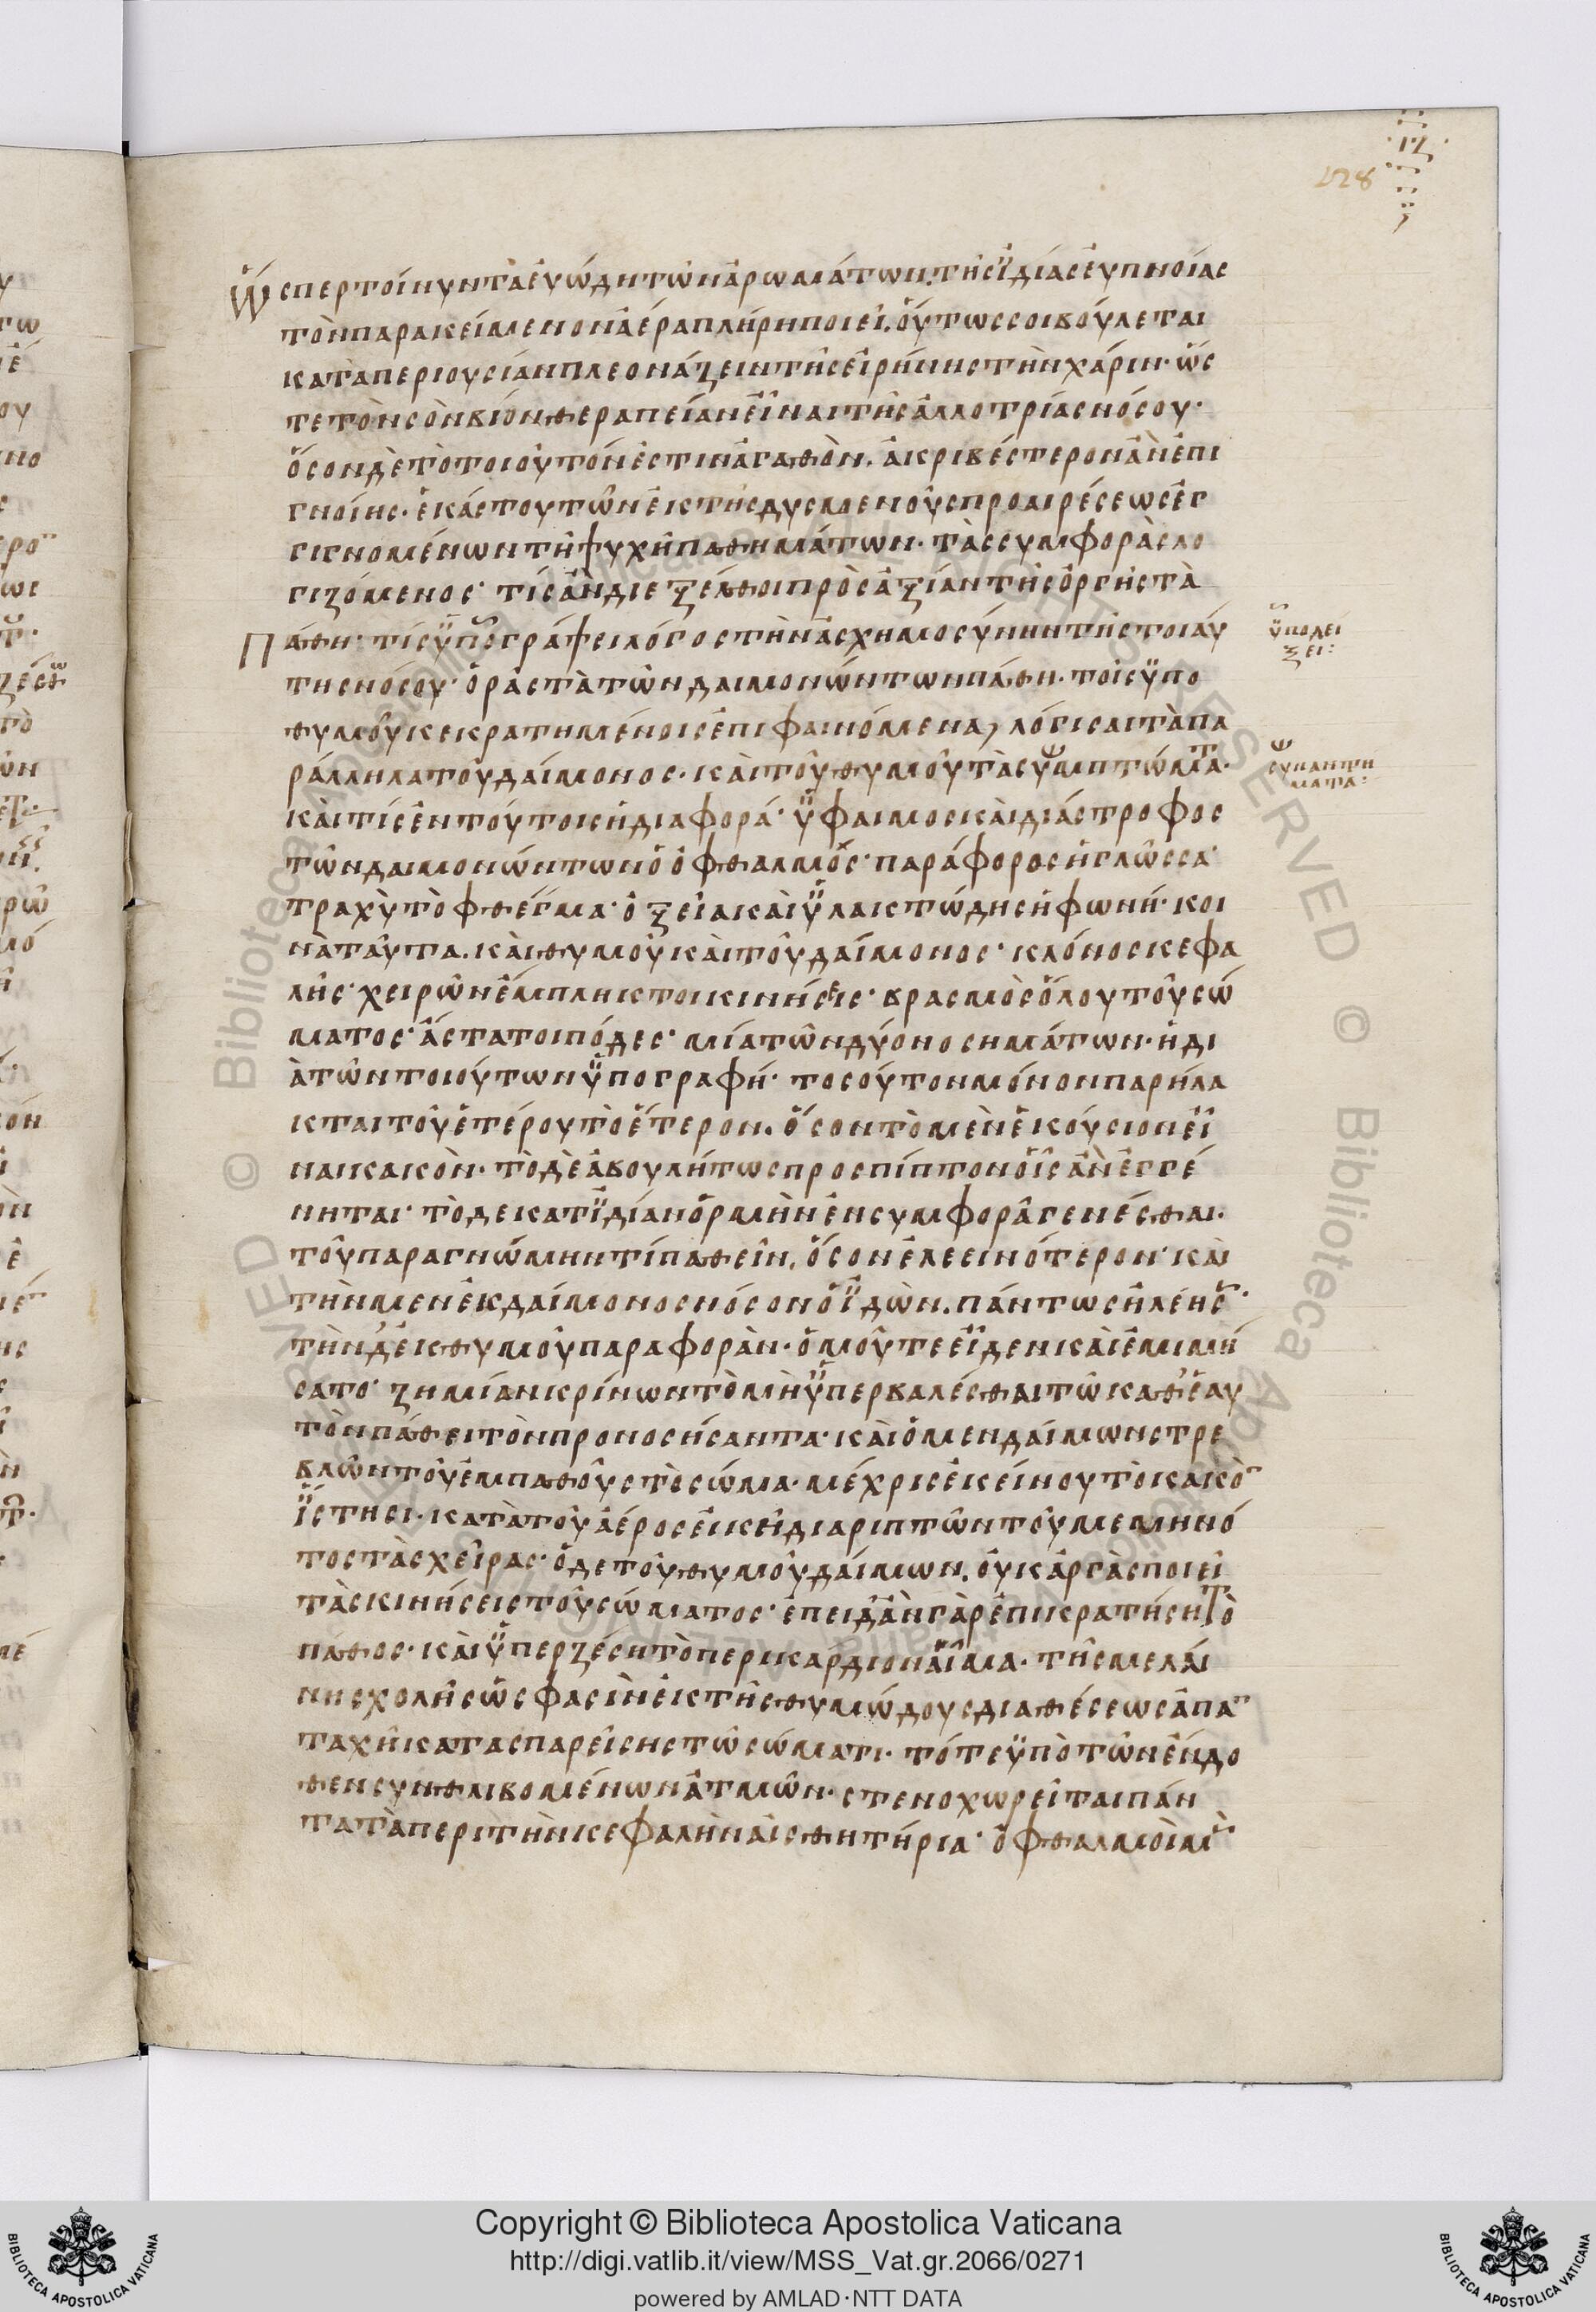 ·ΙΖ·
128
Ὥσπερ τοίνυν τὰ εὐώδη τῶν ἀρωμάτων. τῆς ϊδίας εὐπνοίας
τὸν παρακείμενον ἀέρα πλήρη ποιεῖ. οὕτως σοι βούλεται
κατὰ περιουσίαν πλεονάζειν τῆς εἰρήνης τὴν χάριν· ὥσ
τε τὸν σὸν βίον θεραπείαν εἶναι τῆς ἀλλοτρίας νόσου·
ὅσον δὲ τὸ τοιοῦτόν ἐστιν ἀγαθὸν. ἀκριβέστερον ἂν ἐπι
γνοίης· ἑκάστου τῶν ἐκ τῆς δυσμενοῦς προαιρέσεως ἐγ
γιγνομένων τῆ ψυχῆ παθημάτων· τὰς συμφορὰς λο
γιζόμενος· τίς ἂν διεξέλθοι πρὸς ἀξίαν τῆς ὀργῆς τὰ
πάθη· τίς ϋπογράψει λόγος τὴν ἀσχημοσύνην τῆς τοιαύ
της νόσου· ὁρᾶς τὰ τῶν δαιμονώντων πάθη· τοῖς ϋπο
θυμοῦ κεκρατημένοις ἐπιφαινόμενα, λόγισαι τὰ πα
ράλληλα τοῦ δαίμονος· καὶ τοῦ θυμοῦ τὰ συμπτώματα·
καὶ τίς ἐν τούτοις ἡ διαφορά· ὕφαιμος καὶ διάστροφος
τῶν δαιμονώντων ὁ ὀφθαλμός· παράφορος ἡ γλῶσσα·
τραχὺ τὸ φθέγμα· ὀξεῖα καὶ ὑλακτώδης ἡ φωνή· κοι
νὰ ταῦτα. καὶ θυμοῦ καὶ τοῦ δαίμονος· κλόνος κεφα
λῆς· χειρῶν ἔμπληκτοι κινήσεις· βρασμὸς ὅλου τοῦ σώ
ματος· ἄστατοι πόδες· μία τῶν δύο νοσημάτων· ἡ δι
ὰ τῶν τοιούτων ὑπογραφή· τοσοῦτον μόνον παρήλα
κται τοῦ ἑτέρου τὸ ἕτερον. ὅσον τὸ μὲν ἑκούσιον εἶ
ναι κακὸν· τὸ δὲ ἀβουλήτως προσπίπτον οἷς ἂν ἐγγέ
νηται· τὸ δε κατ ϊδίαν ὁρμὴν ἐν συμφορᾶ γενέσθαι·
τοῦ παρα γνώμην τί παθεῖν. ὅσον ἐλεεινότερον· καὶ
τὴν μεν ἐκ δαίμονος νόσον ὁ ϊδὼν. πάντως ἠλέησεν·
τὴν δ' ἐκ θυμοῦ παραφορὰν· ὁμοῦ τε εἶδεν καὶ ἐμιμή
σατο· ζημίαν κρίνων τὸ μὴ ὑπερβαλέσθαι τῶ καθ' ἑαυ
τὸν πάθει τὸν προνοσήσαντα· καὶ ὁ μεν δαίμων στρε
βλῶν τοῦ ἐμπαθοῦς τὸ σῶμα· μέχρις ἐκείνου τὸ κακὸν
ἵστησι· κατὰ τοῦ ἀέρος εἰκῆ διαριπτῶν τοῦ μεμηνό
τος τὰς χεῖρας· ὁ δε τοῦ θυμοῦ δαίμων. οὐκ ἀργὰς ποιεῖ
τὰς κινήσεις τοῦ σώματος· ἐπειδὰν γὰρ ἐπικρατήση τὸ
πάθος· καὶ ὑπερζέση τὸ περικάρδιον αἷμα· τῆς μελαί
νης χολῆς ὥς φασὶν ἐκ τῆς θυμώδους διαθέσεως ἁπαν
ταχῆ κατασπαρείσης τῶ σώματι· τότε ϋπὸ τῶν ἔνδο
θεν συνθλιβομένων ἀτμῶν· στενοχωρεῖται πάν
τα τὰ περὶ τὴν κεφαλὴν αἰσθητήρια· ὀφθαλμοὶ μὲν
ϋποδεί
ξει:
συναντή
ματα:
Copyright © Biblioteca Apostolica Vaticana
http://digi.vatlib.it/view/MSS_Vat.gr.2066/0271
powered by AMLAD·NTT DATA